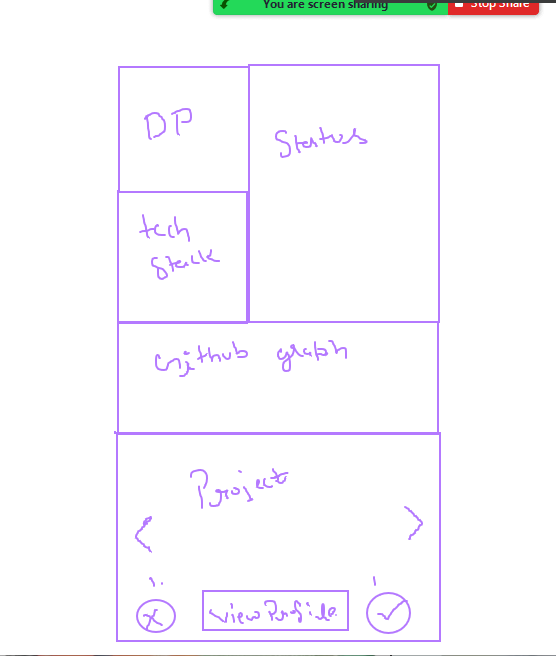 You are screen sharing
Stop Share
DP
Status
tech
stack
Github graph
Project
< >
X View Profile